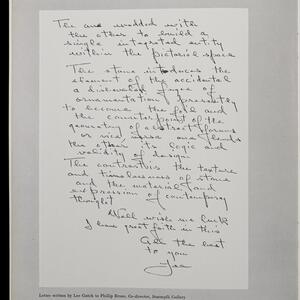 The one wedded with
the other to build a
single integrated entity
within the pictorial space
The stone introduces the
element of the accidental
a dislocated
ornamentation presently
to become the foil and
the counterpoint of the
geometry of abstract forms
or vice versa one lends
the other its logic and
validity of design.
The contrast is the texture
and timelessness of stone
and the material and
expression of contemporary
thought
Well wish me luck
I have great faith in this
All the best
to you
Lee
Letter written by Lee Gatch to Phillip Bruno, Co-director, Staempfli Gallery